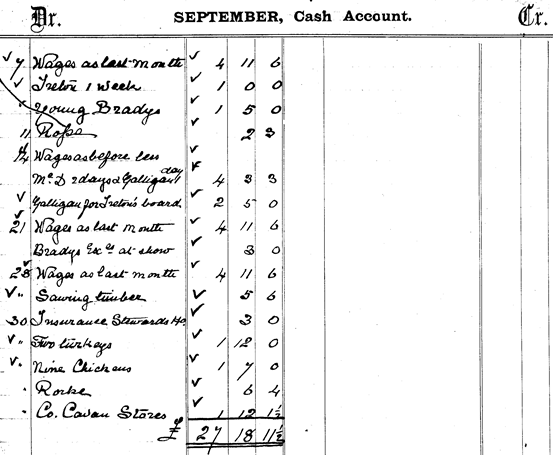 Dr. SEPTEMBER, Cash Account. Cr.
✓ 7 Wages as last month ✓ 4 11 6
✓ Ireton 1 week ✓ 1 0 0
✓ Young Bradys ✓ 1 5 0
11 Rope 2 3
14 Wages as before less ✓
McD 2 days & Galligan 1 day 4 3 3
✓ Galligan for Ireton's board ✓ 2 5 0
✓ 21 Wages as last month ✓ 4 11 6
Bradys Exs at show ✓ 3 0
✓ 28 Wages as last month ✓ 4 11 6
✓ " Sawing timber ✓ 5 6
30 Insurance Stewards Ho. ✓ 3 0
✓ " Two turkeys ✓ 1 12 0
✓ " Nine Chickens ✓ 1 7 0
" Rorke ✓ 6 4
" Co. Cavan Stores ✓ 1 12 1½
£ 27 18 11½